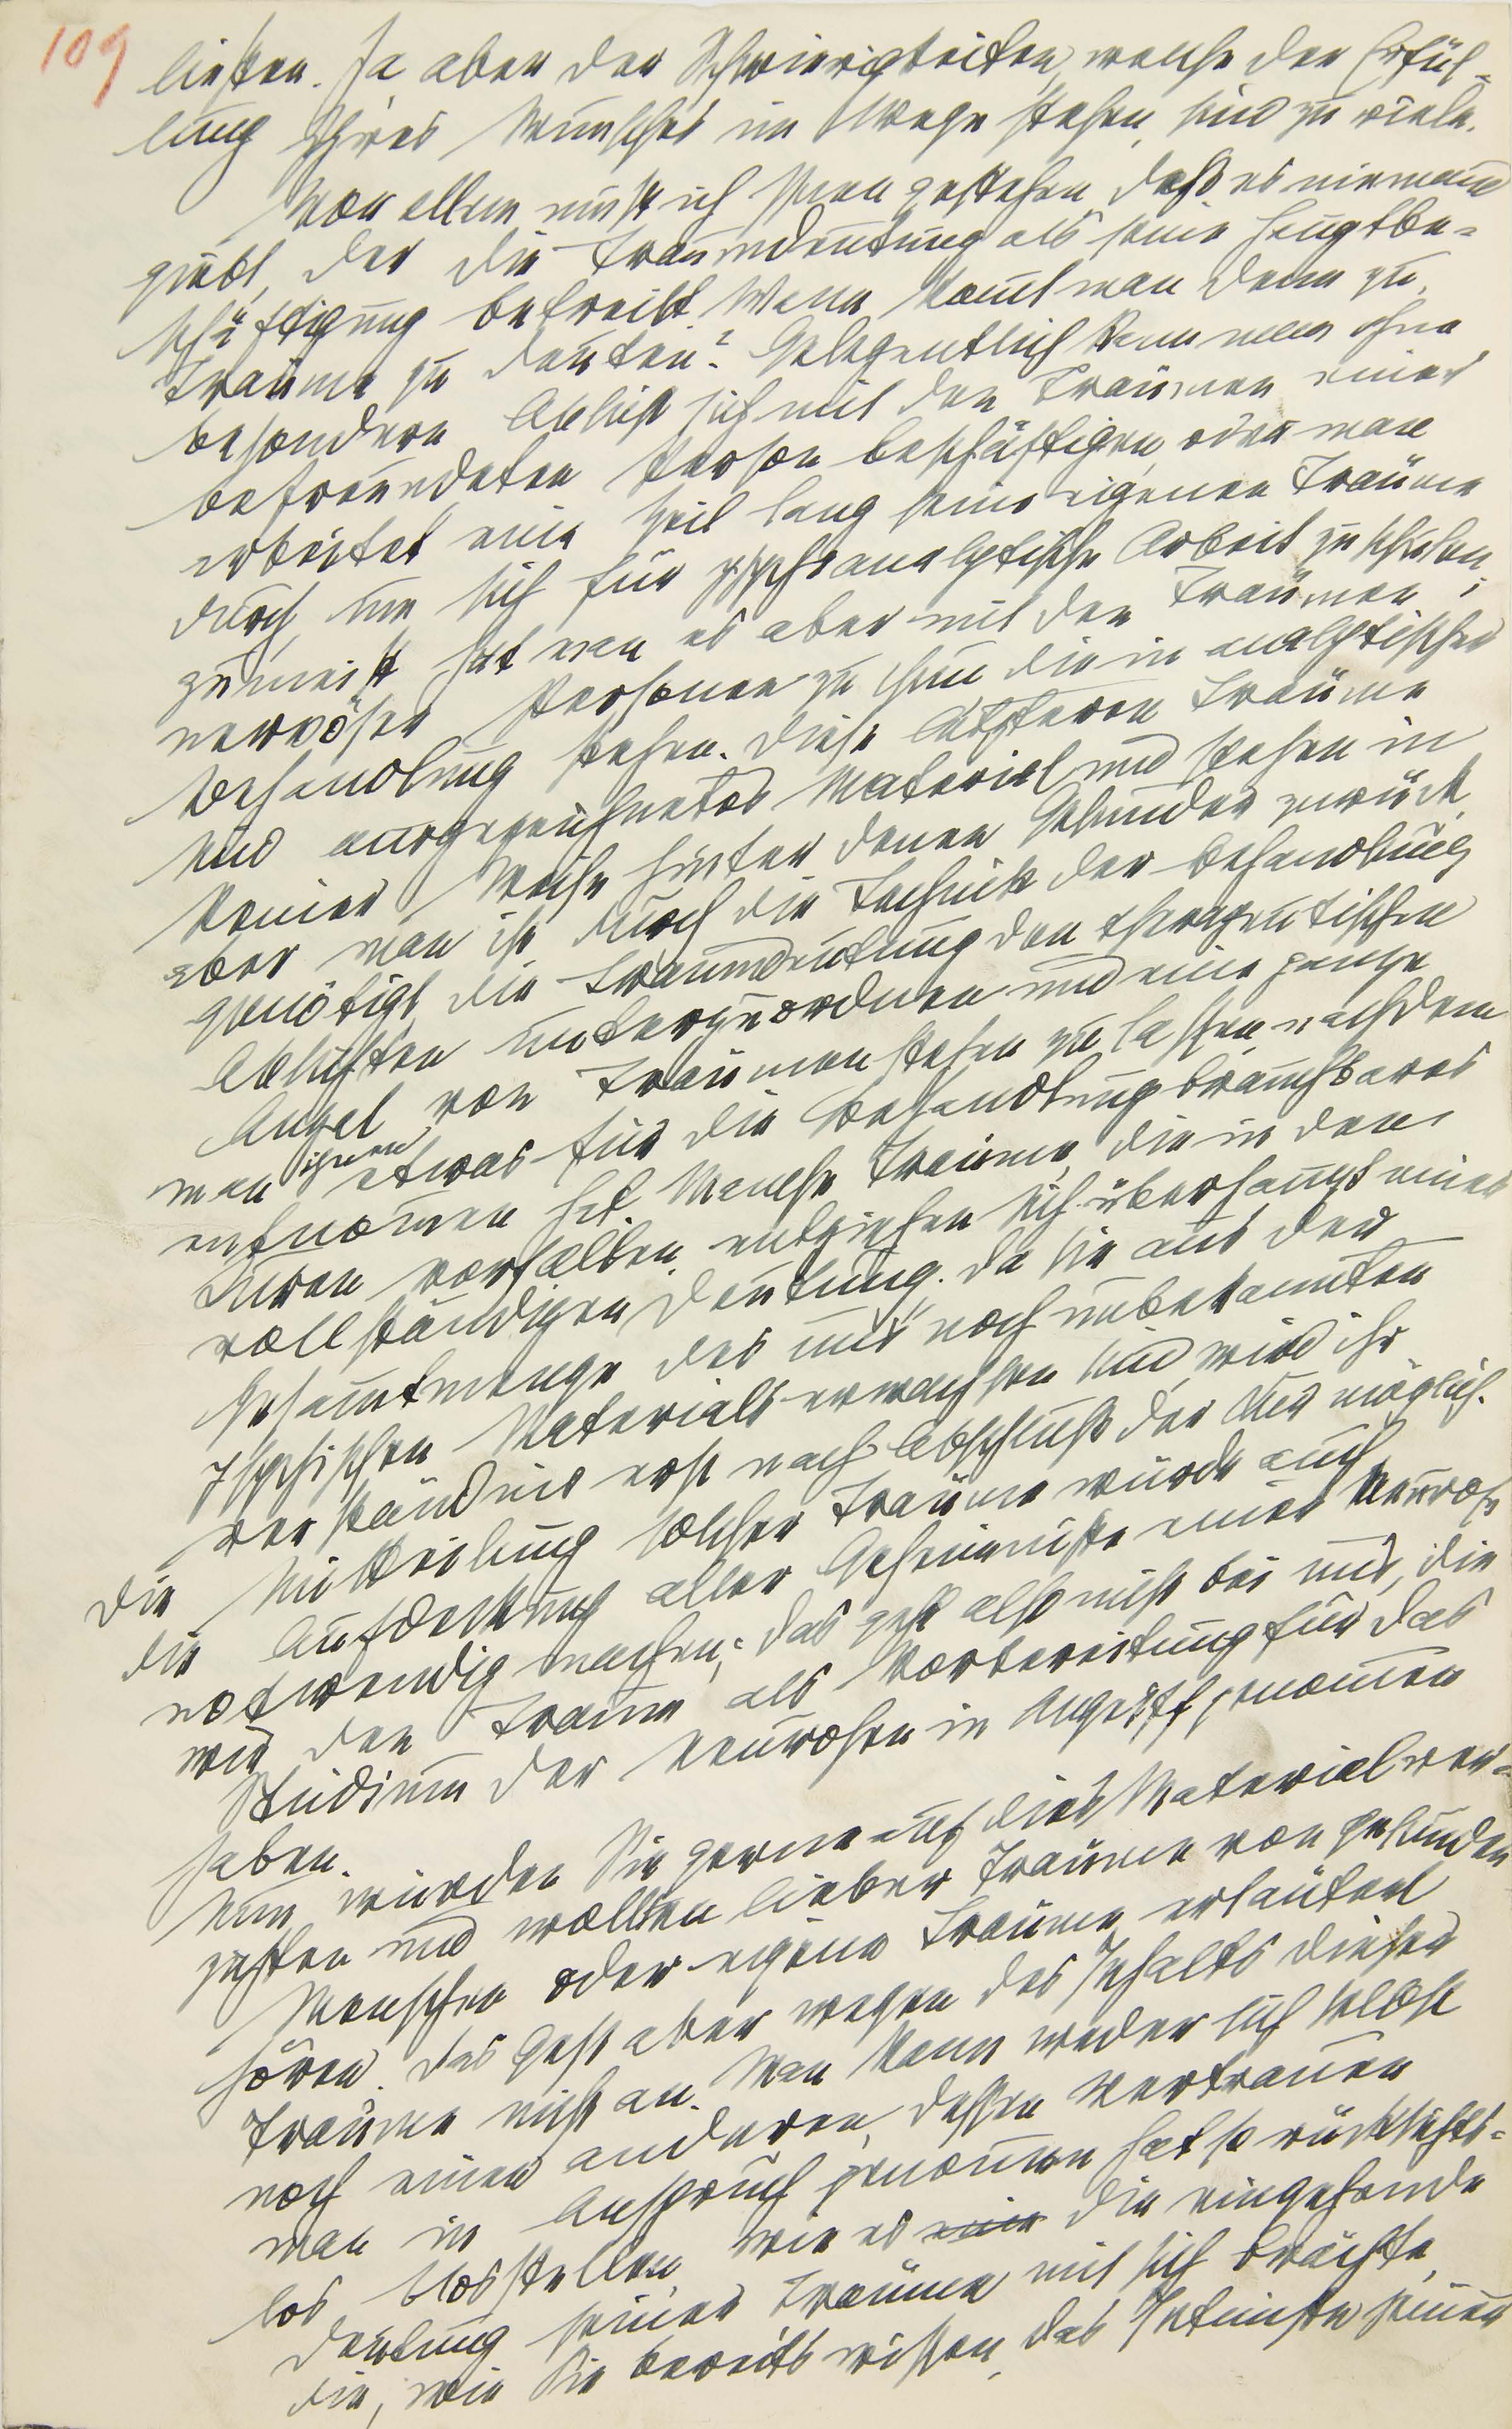 109
ließen. Ja aber der Schwierigkeiten, welche der Erfül-
lung Ihres Wunsches im Wege stehen, sind zu viele.
Vor allem muß ich Ihnen gestehen, daß es niemand
giebt, der die Traumdeutung als seine Hauptbe-
schäftigung betreibt. Wann kommt man denn zu,
Träume zu deuten? Gelegentlich kann man ohne
besondere Absicht sich mit den Träumen einer
befreundeten Person beschäftigen, oder man
arbeitet eine Zeit lang seine eigenen Träume
durch, um sich für psychoanalytische Arbeit zu schulen;
zumeist hat man es aber mit den Träumen
nervöser Personen zu thun, die in analytischer
Behandlung stehen. Diese letzteren Träume
sind ausgezeichnetes Material und stehen in
keiner Weise hinter denen Gesunder zurück,
aber man ist durch die Technik der Behandlung
genötigt, die Traumdeutung den therapeutischen
Absichten unterzuordnen und eine ganze
Anzal von Träumen stehen zu lassen, nachdem
man ihnen etwas für die Behandlung brauchbares
entnommen hat. Manche Träume, die in den
Kuren vorfallen, entziehen sich überhaupt einer
vollständigen Deutung. Da sie aus der
Gesammtmenge des uns noch unbekannten
psychischen Materials erwachsen sind, wird ihr
Verständnis erst nach Abschluß der Kur möglich.
Die Mitteilung solcher Träume würde auch
die Aufdeckung aller Geheimniße einer Neurose
notwendig machen; das geht also nicht bei uns, die
wir den Traum als Vorbereitung für das
Studium der Neurosen in Angriff genommen
haben.
Nun würden Sie gerne auf dies Material ver-
zichten und wollten lieber Träume von gesunden
Menschen oder eigene Träume erläutert
hören. Das geht aber wegen des Inhalts dieser
Träume nicht an. Man kann weder sich selbst
noch einen anderen, deßen Vertrauen
man in Anspruch genommen hat so rücksichts-
los blosstellen, wie es eine die eingehende
Deutung seiner Träume mit sich brächte,
die, wie Sie bereits wissen, das Intimste seiner